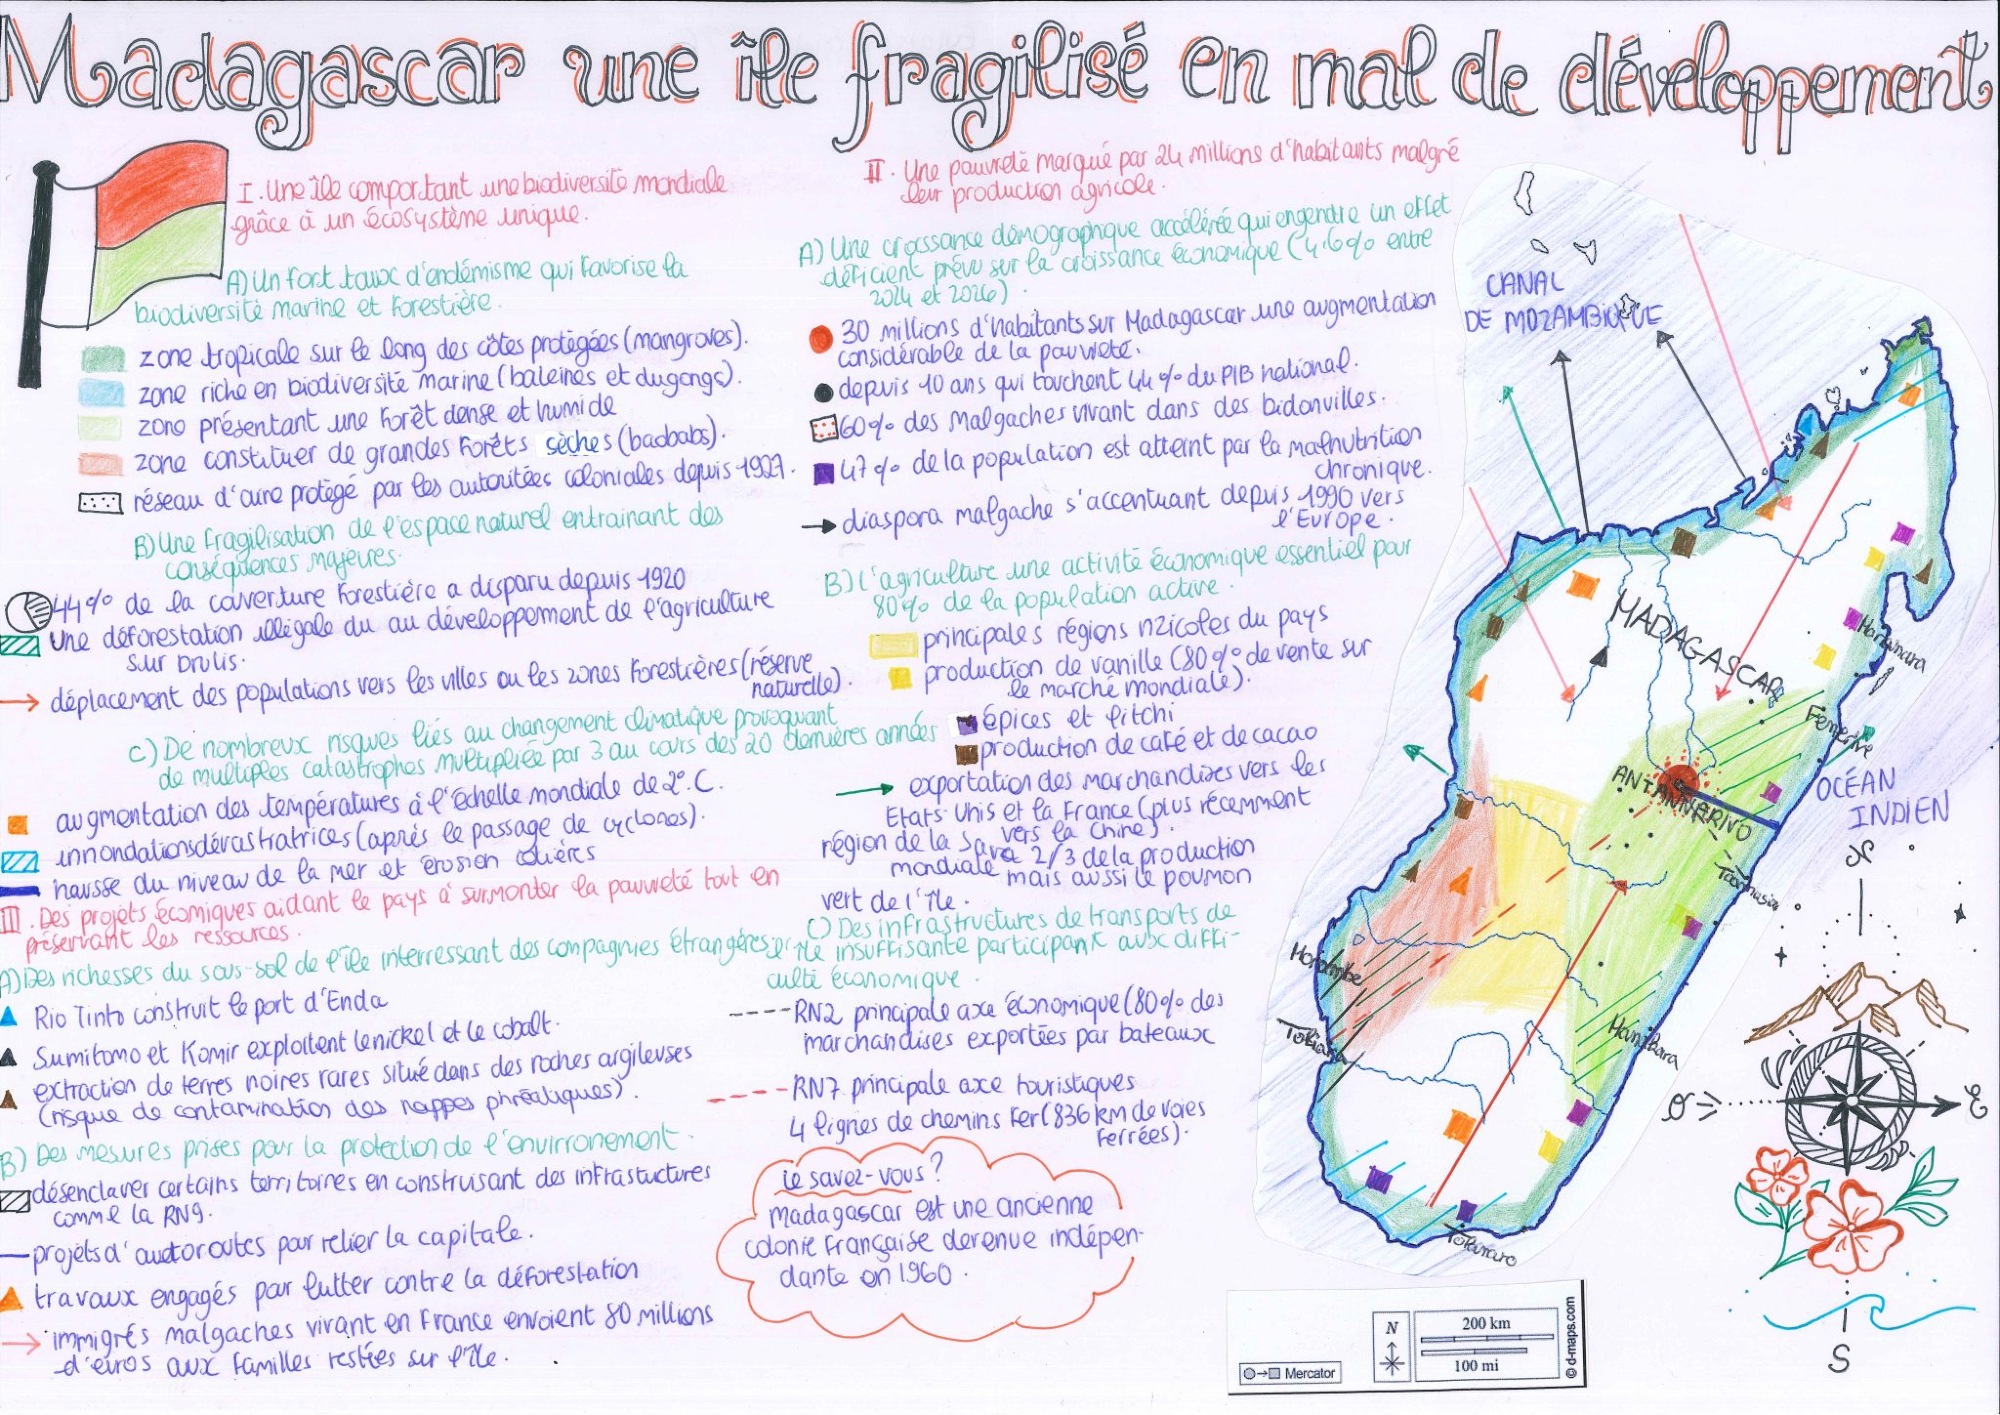 Madagascar une île fragilisé en mal de développement
I. Une île comportant une biodiversité mondiale
grâce à un écosystème unique.
A) Un fort taux d'endémisme qui favorise la
biodiversité marine et forestière.
zone tropicale sur le long des côtes protégées (mangroves).
zone riche en biodiversité marine (baleines et dugongs).
zone présentant une forêt dense et humide
zone constituer de grandes forêts sèches (baobabs).
réseau d'aire protégé par les autoritées coloniales depuis 1927.
B) Une fragilisation de l'espace naturel entrainant des
conséquences majeures.
44% de la couverture forestière a disparu depuis 1920
Une déforestation illégale du au développement de l'agriculture
sur brulis.
déplacement des populations vers les villes ou les zones forestières (réserve
naturelle).
C) De nombreux risques liés au changement climatique provoquant
de multiples catastrophes multipliée par 3 au cours des 20 dernières années
augmentation des températures à l'échelle mondiale de 2°.C.
innondations dévastratrices (après le passage de cyclones).
hausse du niveau de la mer et érosion côlières
III. Des projets écomiques aidant le pays à surmonter la pauvreté tout en
préservant les ressources.
A) Des richesses du sous-sol de l'île interressant des compagnies étrangères.
Rio Tinto construit le port d'Enda
Sumitomo et Komir exploitent le nickel et le cobalt.
extraction de terres noires rares situé dans des roches argileuses
(risque de contamination des nappes phréatiques).
B) Des mesures prises pour la protection de l'envirronement.
désenclaver certains territoires en construisant des infrastuctures
comme la RN9.
projets d'autoroutes pour relier la capitale.
travaux engagés pour lutter contre la déforestation
immigrés malgaches vivant en France envoient 80 millions
d'euros aux familles restées sur l'île.
II. Une pauvreté marqué par 24 millions d'habitants malgré
leur production agricole.
A) Une croissance démographique accélérée qui engendre un effet
déficient prévu sur la croissance économique (4,6% entre
2024 et 2026).
30 millions d'habitants sur Madagascar une augmentation
considérable de la pauvreté.
depuis 10 ans qui touchent 44% du PIB national.
60% des Malgaches vivant dans des bidonvilles.
47% de la population est atteint par la malnutrition
chronique.
diaspora malgache s'accentuant depuis 1990 vers
l'Europe.
B) L'agriculture une activité économique essentiel pour
80% de la population active.
principales régions rizicoles du pays
production de vanille (80% de vente sur
le marché mondiale).
épices et litchi
production de café et de cacao
exportation des marchandises vers les
Etats-Unis et la France (plus récemment
vers la Chine).
région de la Sava 2/3 de la production
mondiale mais aussi le poumon
vert de l'île.
C) Des infrastructures de transports de
l'île insuffisante participant aux diffi-
culté économique.
RN2 principale axe économique (80% des
marchandises exportées par bateaux
RN7 principale axe touristiques
4 lignes de chemins fer (836 km de voies
ferrées).
le savez-vous?
Madagascar est une ancienne
colonie française devenue indépen-
dante en 1960.
CANAL
DE MOZAMBIQUE
MADAGASCAR
ANTANNARIVO
OCÉAN
INDIEN
Morombe
Toliara
N
O
E
S
N
200 km
100 mi
Mercator
© d-maps.com